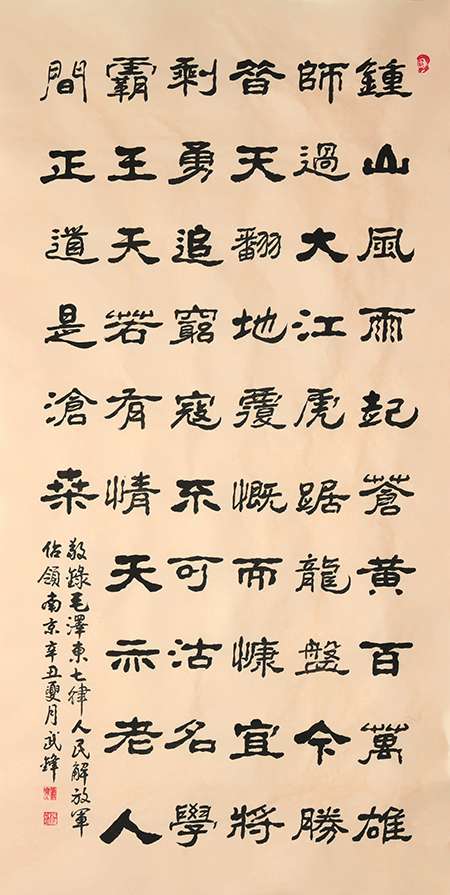 鍾山風雨起蒼黃百萬雄
師過大江虎踞龍盤今勝
昔天翻地覆慨而慷宜將
剩勇追窮寇不可沽名學
霸王天若有情天亦老人
間正道是滄桑
敬錄毛澤東七律人民解放軍
佔領南京辛丑夏月武鋒